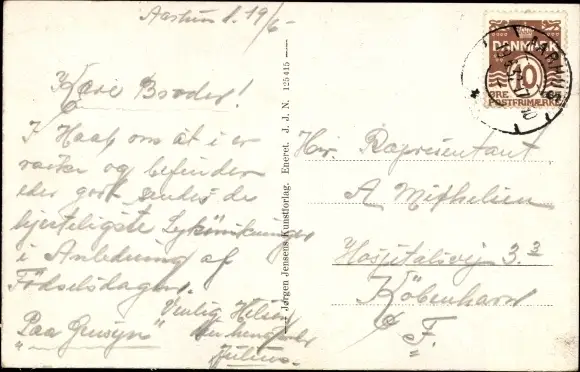 Aarhus d. 19/6-
Kære Broder!
I Haab om at i er
raske og befinder
eder godt sendes de
hjerteligste Lykønskninger
i Anledning af
Fødselsdagen.
Venlig Hilsen
"Paa Gensyn"
Julius.
J. Jørgen Jensens Kunstforlag. Eneret. J. J. N. 125415
DANMARK
10
ØRE
POSTFRIMÆRKE
AARHUS
Hr. Repræsentant
A Mikkelsen
Hospitalsvej 3.3
København
F.